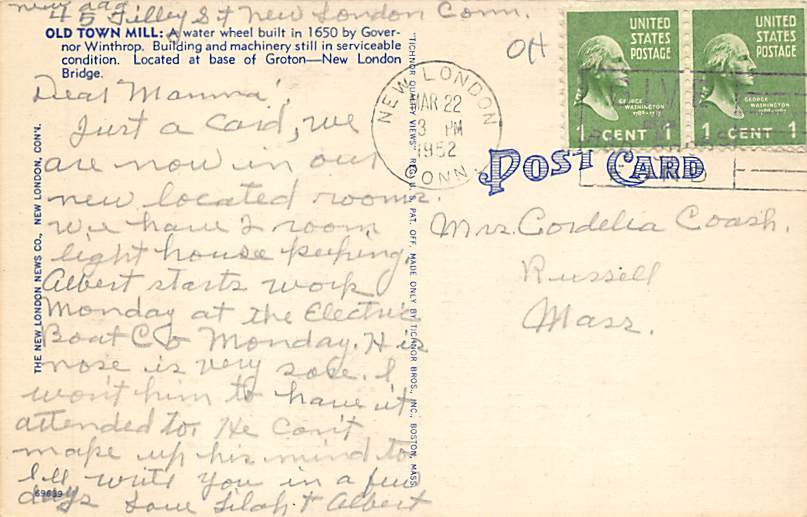 new add
45 Tilley St New London Conn.
OLD TOWN MILL: A water wheel built in 1650 by Gover-
nor Winthrop. Building and machinery still in serviceable
condition. Located at base of Groton—New London
Bridge.
Dear Mamma',
Just a card, we
are now in our
new located rooms.
we have 2 room
light house keeping.
Albert starts work
Monday at the Electric
Boat Co Monday. His
nose is very sore. I
won't him to have it
attended to, He can't
make up his mind to
I'll write you in a few
days Love Lilah & Albert
69839
THE NEW LONDON NEWS CO., NEW LONDON, CON'N.
"TICHNOR QUALITY VIEWS" REG. U. S. PAT. OFF. MADE ONLY BY TICHNOR BROS., INC., BOSTON, MASS.
OH
NEW LONDON
MAR 22
3 PM
1952
CONN.
UNITED
STATES
POSTAGE
GEORGE
WASHINGTON
1 CENT 1
UNITED
STATES
POSTAGE
GEORGE
WASHINGTON
1 CENT 1
POST CARD
Mrs. Cordelia Coash.
Russell
Mass.